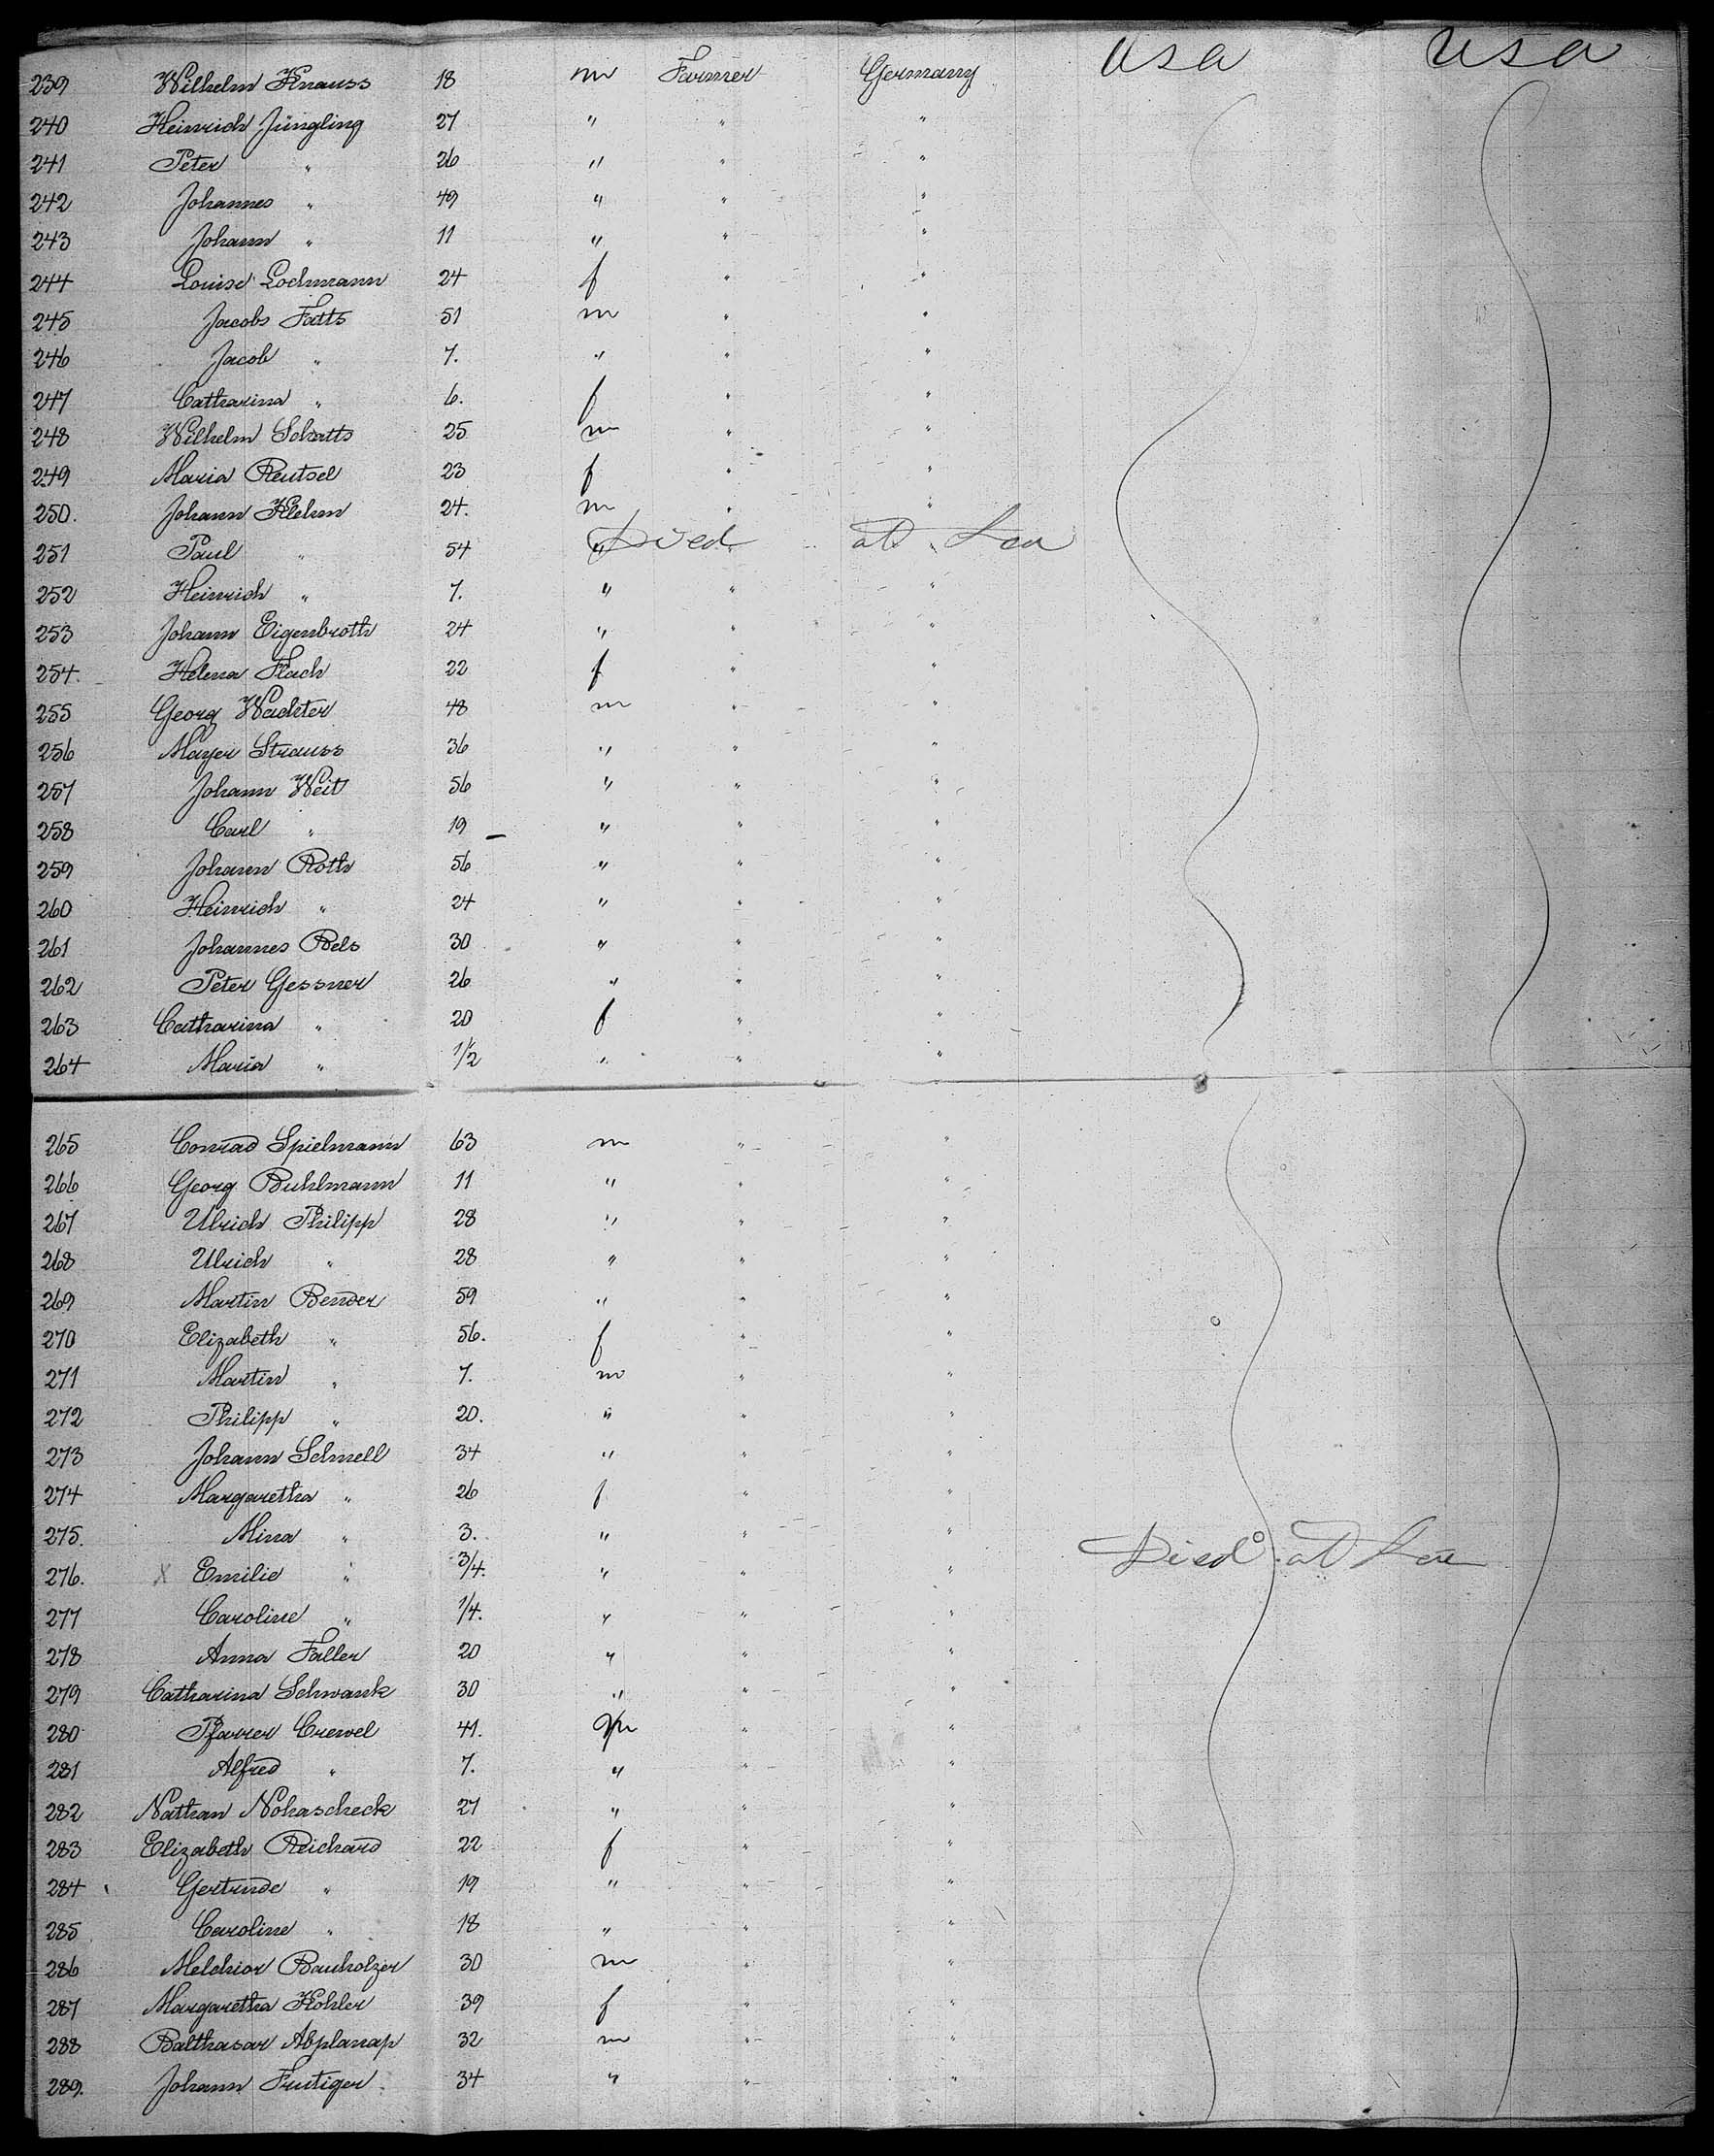 USA USA
239 Wilhelm Knauss 18 m Farmer Germany
240 Heinrich Jüngling 27 " " "
241 Peter " 26 " " "
242 Johannes " 49 " " "
243 Johann " 11 " " "
244 Louise Lochmann 24 f " "
245 Jacobs Fatts 51 m " "
246 Jacob " 7. " " "
247 Catharina " 6. f " "
248 Wilhelm Schatts 25 m " "
249 Maria Reutsel 23 f " "
250. Johann Klehm 24. m " "
251 Paul " 54 " Died at Sea
252 Heinrich " 7. " " "
253 Johann Eigenbroth 24 " " "
254. Helena Flach 22 f " "
255 Georg Wachter 48 m " "
256 Mayer Strauss 36 " " "
257 Johann Weit 56 " " "
258 Carl " 19 " " "
259 Johann Roth 56 " " "
260 Heinrich " 24 " " "
261 Johannes Bels 30 " " "
262 Peter Gessner 26 " " "
263 Catharina " 20 f " "
264 Maria " 1/2 " " "
265 Conrad Spielmann 63 m " "
266 Georg Buhlmann 11 " " "
267 Ulrich Philipp 28 " " "
268 Ulrich " 28 " " "
269 Martin Bender 59 " " "
270 Elizabeth " 56. f " "
271 Martin " 7. m " "
272 Philipp " 20. " " "
273 Johann Schnell 34 " " "
274 Margaretha " 26 f " "
275. Mina " 3. " " "
276. X Emilie " 3/4. " " " Died at Sea
277 Caroline " 1/4. " " "
278 Anna Faller 20 " " "
279 Catharina Schwank 30 " " "
280 Pfarrer Crewel 41. m " "
281 Alfred " 7. " " "
282 Nathan Nohascheck 27 " " "
283 Elizabeth Reichard 22 f " "
284 Gertrude " 19 " " "
285 Caroline " 18 " " "
286 Melchior Bauholzer 30 m " "
287 Margaretha Kohler 39 f " "
288 Balthasar Abplanap 32 m " "
289. Johann Frutiger 34 " " "